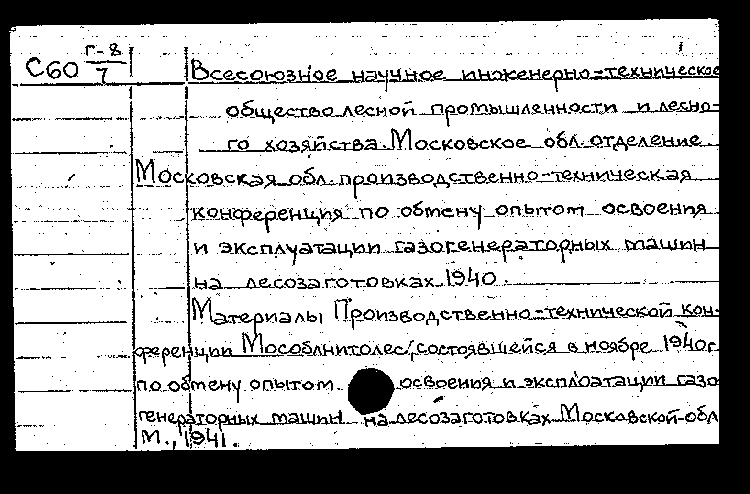 С60 г-8/7
Всесоюзное научное инженерно-техническое
общество лесной промышленности и лесно-
го хозяйства. Московское обл. отделение.
Московская обл. производственно-техническая
конференция по обмену опытом освоения
и эксплуатации газогенераторных машин
на лесозаготовках. 1940.
Материалы Производственно-технической кон-
ференции Мособлнитолес, состоявшейся в ноябре 1940г.
по обмену опытом освоения и эксплоатации газо
генераторных машин на лесозаготовках Московской обл
М., 1941.